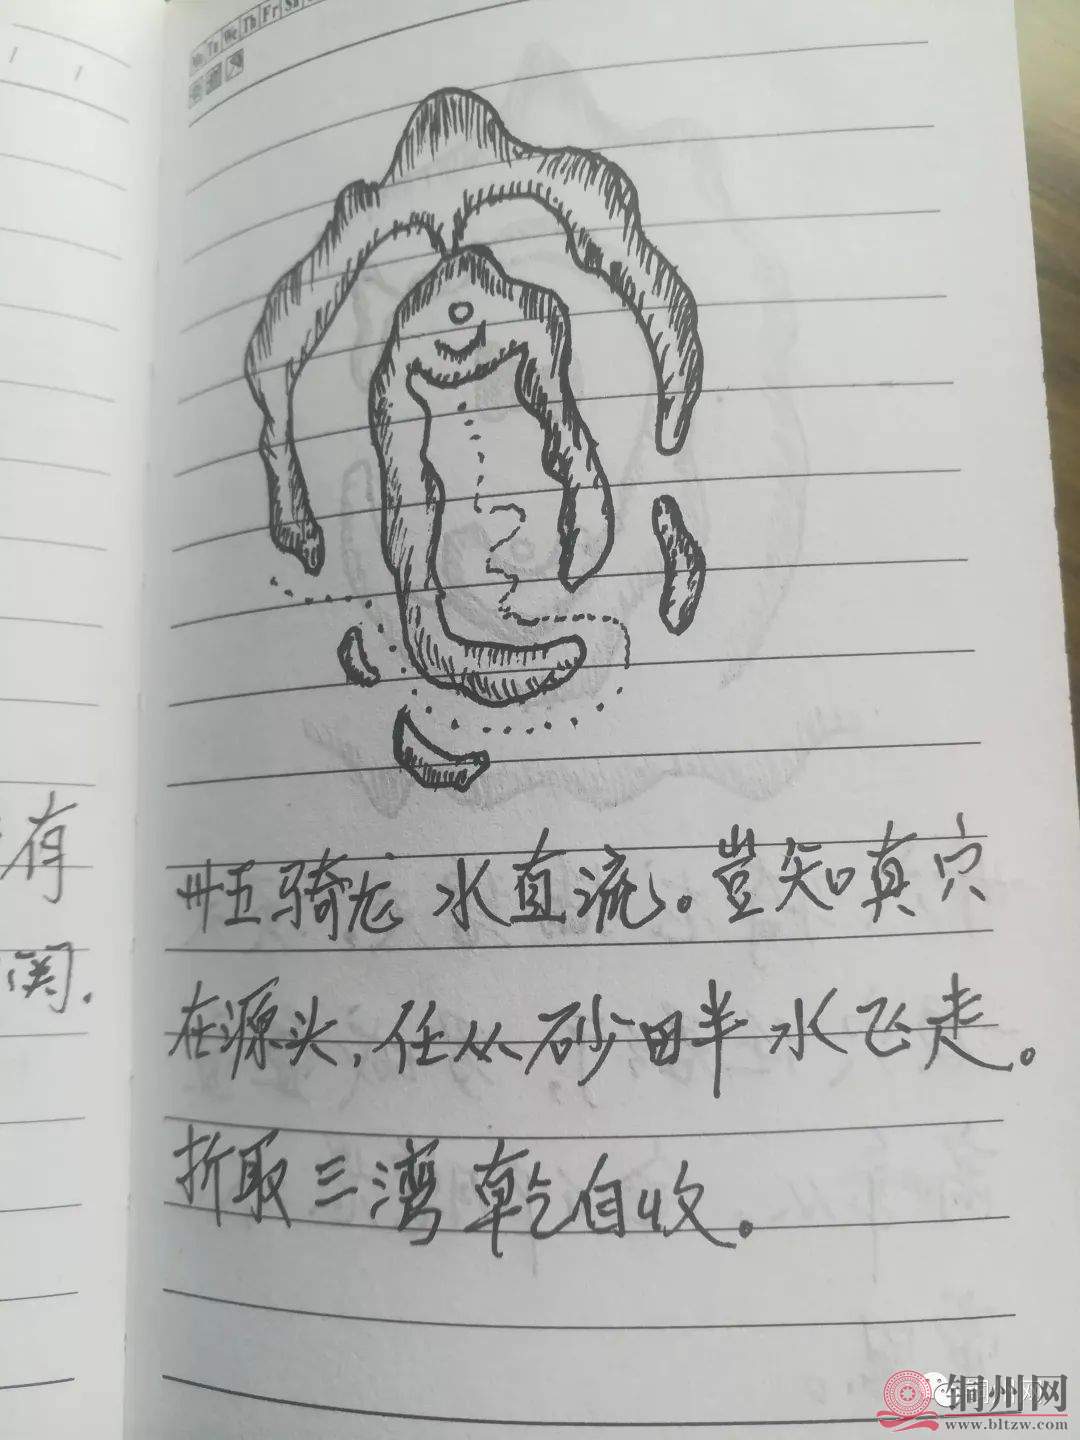 Mo Tu We Th Fr Sa
有
关.
卅五骑龙 水直流。岂知真穴
在源头,任从砂畔水飞走。
折取三湾乾自收。
铜州网
www.bltzw.com